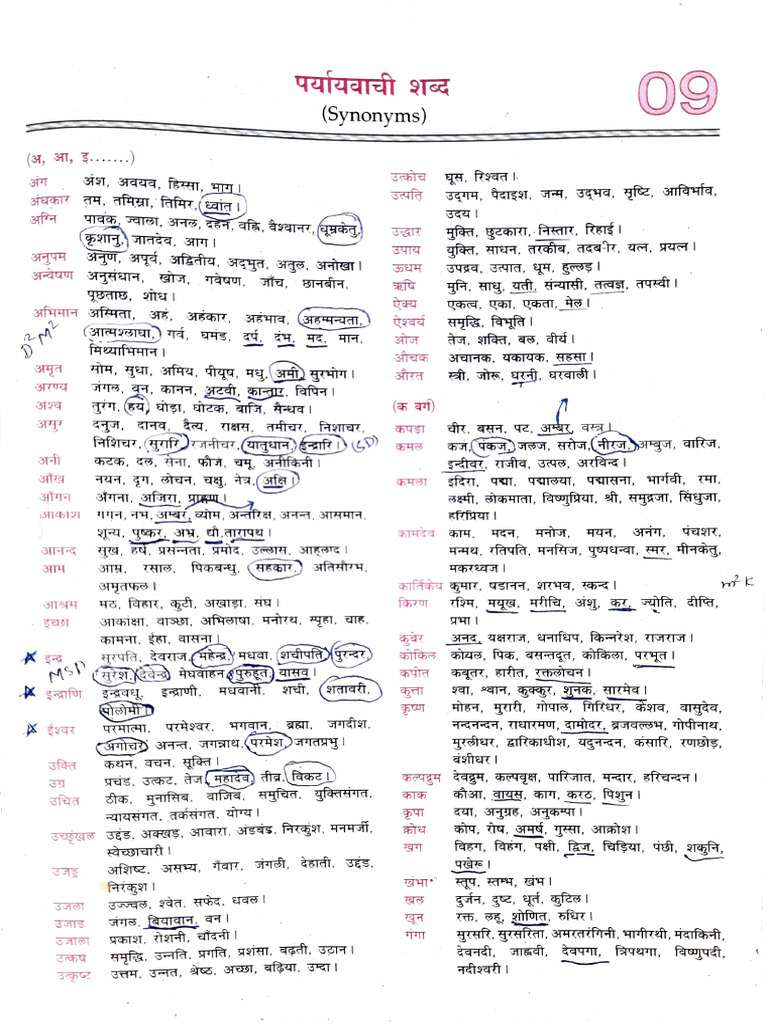 पर्यायवाची शब्द
(Synonyms)
09
(अ, आ, इ.......)
अंग अंश, अवयव, हिस्सा, भाग।
अंधकार तम, तमिस्रा, तिमिर, ध्वांत।
अग्नि पावक, ज्वाला, अनल, दहन, वह्नि, वैश्वानर, धूम्रकेतु,
कृशानु, जातदेव, आग।
अनुपम अनुण, अपूर्व, अद्वितीय, अद्भुत, अतुल, अनोखा।
अन्वेषण अनुसंधान, खोज, गवेषण, जाँच, छानबीन,
पूछताछ, शोध।
अभिमान अस्मिता, अहं, अहंकार, अहंभाव, अहम्मन्यता,
आत्मश्लाघा, गर्व, घमंड, दर्प, दंभ, मद, मान,
मिथ्याभिमान।
D²M²
अमृत सोम, सुधा, अमिय, पीयूष, मधु, अमी, सुरभोग।
अरण्य जंगल, वन, कानन, अटवी, कान्तार, विपिन।
अश्व तुरंग, हय, घोड़ा, घोटक, बाजि, सैन्धव।
असुर दनुज, दानव, दैत्य, राक्षस, तमीचर, निशाचर,
निशिचर, सुरारि, रजनीचर, यातुधान, इन्द्रारि।
अनी कटक, दल, सेना, फौज, चमू, अनीकिनी।
आँख नयन, दृग, लोचन, चक्षु, नेत्र, अक्षि।
आँगन अँगना, अजिरा, प्रांगण।
आकाश गगन, नभ, अम्बर, व्योम, अन्तरिक्ष, अनन्त, आसमान,
शून्य, पुष्कर, अभ्र, द्यौ, तारापथ।
आनन्द सुख, हर्ष, प्रसन्नता, प्रमोद, उल्लास, आह्लाद।
आम आम्र, रसाल, पिकबन्धु, सहकार, अतिसौरभ,
अमृतफल।
आश्रम मठ, विहार, कुटी, अखाड़ा, संघ।
इच्छा आकांक्षा, वाञ्छा, अभिलाषा, मनोरथ, स्पृहा, चाह,
कामना, ईहा, वासना।
इन्द्र सुरपति, देवराज, महेन्द्र, मधवा, शचीपति, पुरन्दर,
सुरेश, देवेन्द्र, मेघवाहन, पुरुहूत, यासव।
इन्द्राणि इन्द्रवधू, इन्द्राणी, मधवानी, शची, शतावरी,
पोलोमी।
ईश्वर परमात्मा, परमेश्वर, भगवान, ब्रह्मा, जगदीश,
अगोचर, अनन्त, जगन्नाथ, परमेश, जगतप्रभु।
उक्ति कथन, वचन, सूक्ति।
उग्र प्रचंड, उत्कट, तेज, महादेव, तीव्र, विकट।
उचित ठीक, मुनासिब, वाजिब, समुचित, युक्तिसंगत,
न्यायसंगत, तर्कसंगत, योग्य।
उच्छृंखल उद्दंड, अक्खड़, आवारा, अंडबंड, निरकुंश, मनमर्जी,
स्वेच्छाचारी।
उजड्ड अशिष्ट, असभ्य, गँवार, जंगली, देहाती, उद्दंड,
निरंकुश।
उजला उज्ज्वल, श्वेत, सफेद, धवल।
उजाड जंगल, बियावान, वन।
उजाला प्रकाश, रोशनी, चाँदनी।
उत्कष समृद्धि, उन्नति, प्रगति, प्रशंसा, बढ़ती, उठान।
उत्कृष्ट उत्तम, उन्नत, श्रेष्ठ, अच्छा, बढ़िया, उम्दा।
उत्कोच घूस, रिश्वत।
उत्पति उद्गम, पैदाइश, जन्म, उद्भव, सृष्टि, आविर्भाव,
उदय।
उद्धार मुक्ति, छुटकारा, निस्तार, रिहाई।
उपाय युक्ति, साधन, तरकीब, तदबीर, यत्न, प्रयत्न।
ऊधम उपद्रव, उत्पात, धूम, हुल्लड़।
ऋषि मुनि, साधु, यती, संन्यासी, तत्वज्ञ, तपस्वी।
ऐक्य एकत्व, एका, एकता, मेल।
ऐश्वर्य समृद्धि, विभूति।
ओज तेज, शक्ति, बल, वीर्य।
औचक अचानक, यकायक, सहसा।
औरत स्त्री, जोरू, घरनी, घरवाली।
(क वर्ग)
कपड़ा चीर, बसन, पट, अम्बर, वस्त्र।
कमल कंज, पंकज, जलज, सरोज, नीरज, अम्बुज, वारिज,
इन्दीवर, राजीव, उत्पल, अरविन्द।
कमला इंदिरा, पद्मा, पद्मालया, पद्मासना, भार्गवी, रमा,
लक्ष्मी, लोकमाता, विष्णुप्रिया, श्री, समुद्रजा, सिंधुजा,
हरिप्रिया।
कामदेव काम, मदन, मनोज, मयन, अनंग, पंचशर,
मन्मथ, रतिपति, मनसिज, पुष्पधन्वा, स्मर, मीनकेतु,
मकरध्वज।
कार्तिकेय कुमार, षडानन, शरभव, स्कन्द।
किरण रश्मि, मयूख, मरीचि, अंशु, कर, ज्योति, दीप्ति,
प्रभा।
m²K
कुबेर अनद, यक्षराज, धनाधिप, किन्नरेश, राजराज।
कोकिल कोयल, पिक, बसन्तदूत, कोकिला, परभूत।
कपोत कबूतर, हारीत, रक्तलोचन।
कुत्ता श्वा, श्वान, कुक्कुर, शुनक, सारमेव।
कृष्ण मोहन, मुरारी, गोपाल, गिरिधर, केशव, वासुदेव,
नन्दनन्दन, राधारमण, दामोदर, ब्रजवल्लभ, गोपीनाथ,
मुरलीधर, द्वारिकाधीश, यदुनन्दन, कंसारि, रणछोड़,
बंशीधर।
कल्पद्रुम देवद्रुम, कल्पवृक्ष, पारिजात, मन्दार, हरिचन्दन।
काक कौआ, वायस, काग, करठ, पिशुन।
कृपा दया, अनुग्रह, अनुकम्पा।
क्रोध कोप, रोष, अमर्ष, गुस्सा, आक्रोश।
खग विहग, विहंग, पक्षी, द्विज, चिड़िया, पंछी, शकुनि,
पखेरू।
खंभा स्तूप, स्तम्भ, खंभ।
खल दुर्जन, दुष्ट, धूर्त, कुटिल।
खून रक्त, लहू, शोणित, रुधिर।
गंगा सुरसरि, सुरसरिता, अमरतरंगिनी, भागीरथी, मंदाकिनी,
देवनदी, जाह्नवी, देवपगा, त्रिपथगा, विष्णुपदी,
नदीश्वरी।